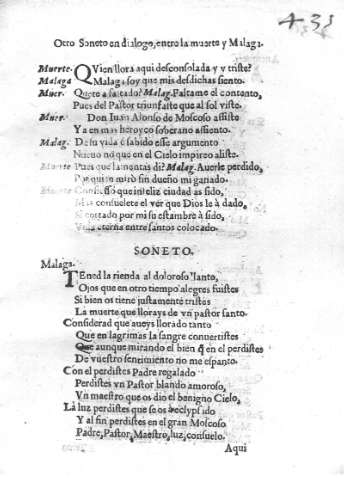 433
Otro Soneto en dialogo, entre la muerte y Malaga.
Muerte. Quien llora aqui desconsolada y triste?
Malaga Malaga soy que mis desdichas siento.
Muer. Que te a faltado? Malag. Faltame el contento,
Pues del Pastor triunfaste que al sol viste.
Muer. Don Iuan Alonso de Moscoso assiste
Ya en mas heroyco soberano assiento.
Malag. De su vida é sabido esse argumento
no que en el Cielo impireo aliste.
Muerte Pues que lamentas di? Malag. Auerle perdido,
sin dueño mi ganado.
Muerte Confiesso que infeliz ciudad as sido,
Mas consuelete el ver que Dios le à dado,
cortado por mi su estambre à sido,
Vida eterna entre santos colocado.
SONETO.
Malaga.
Tened la rienda al doloroso llanto,
Ojos que en otro tiempo alegres fuistes
Si bien os tiene justamente tristes
La muerte que llorays de vn pastor santo.
Considerad que aueys llorado tanto
Que en lagrimas la sangre conuertistes
Que aunque mirando el bien q̃ en el perdistes
De vuestro sentimiento no me espanto.
Con el perdistes Padre regalado
Perdistes vn Pastor blando amoroso,
Vn maestro que os dio el benigno Cielo,
La luz perdistes que se os à eclypsado
Y al fin perdistes en el gran Moscoso
Padre, Pastor, Maestro, luz, consuelo.
Aqui